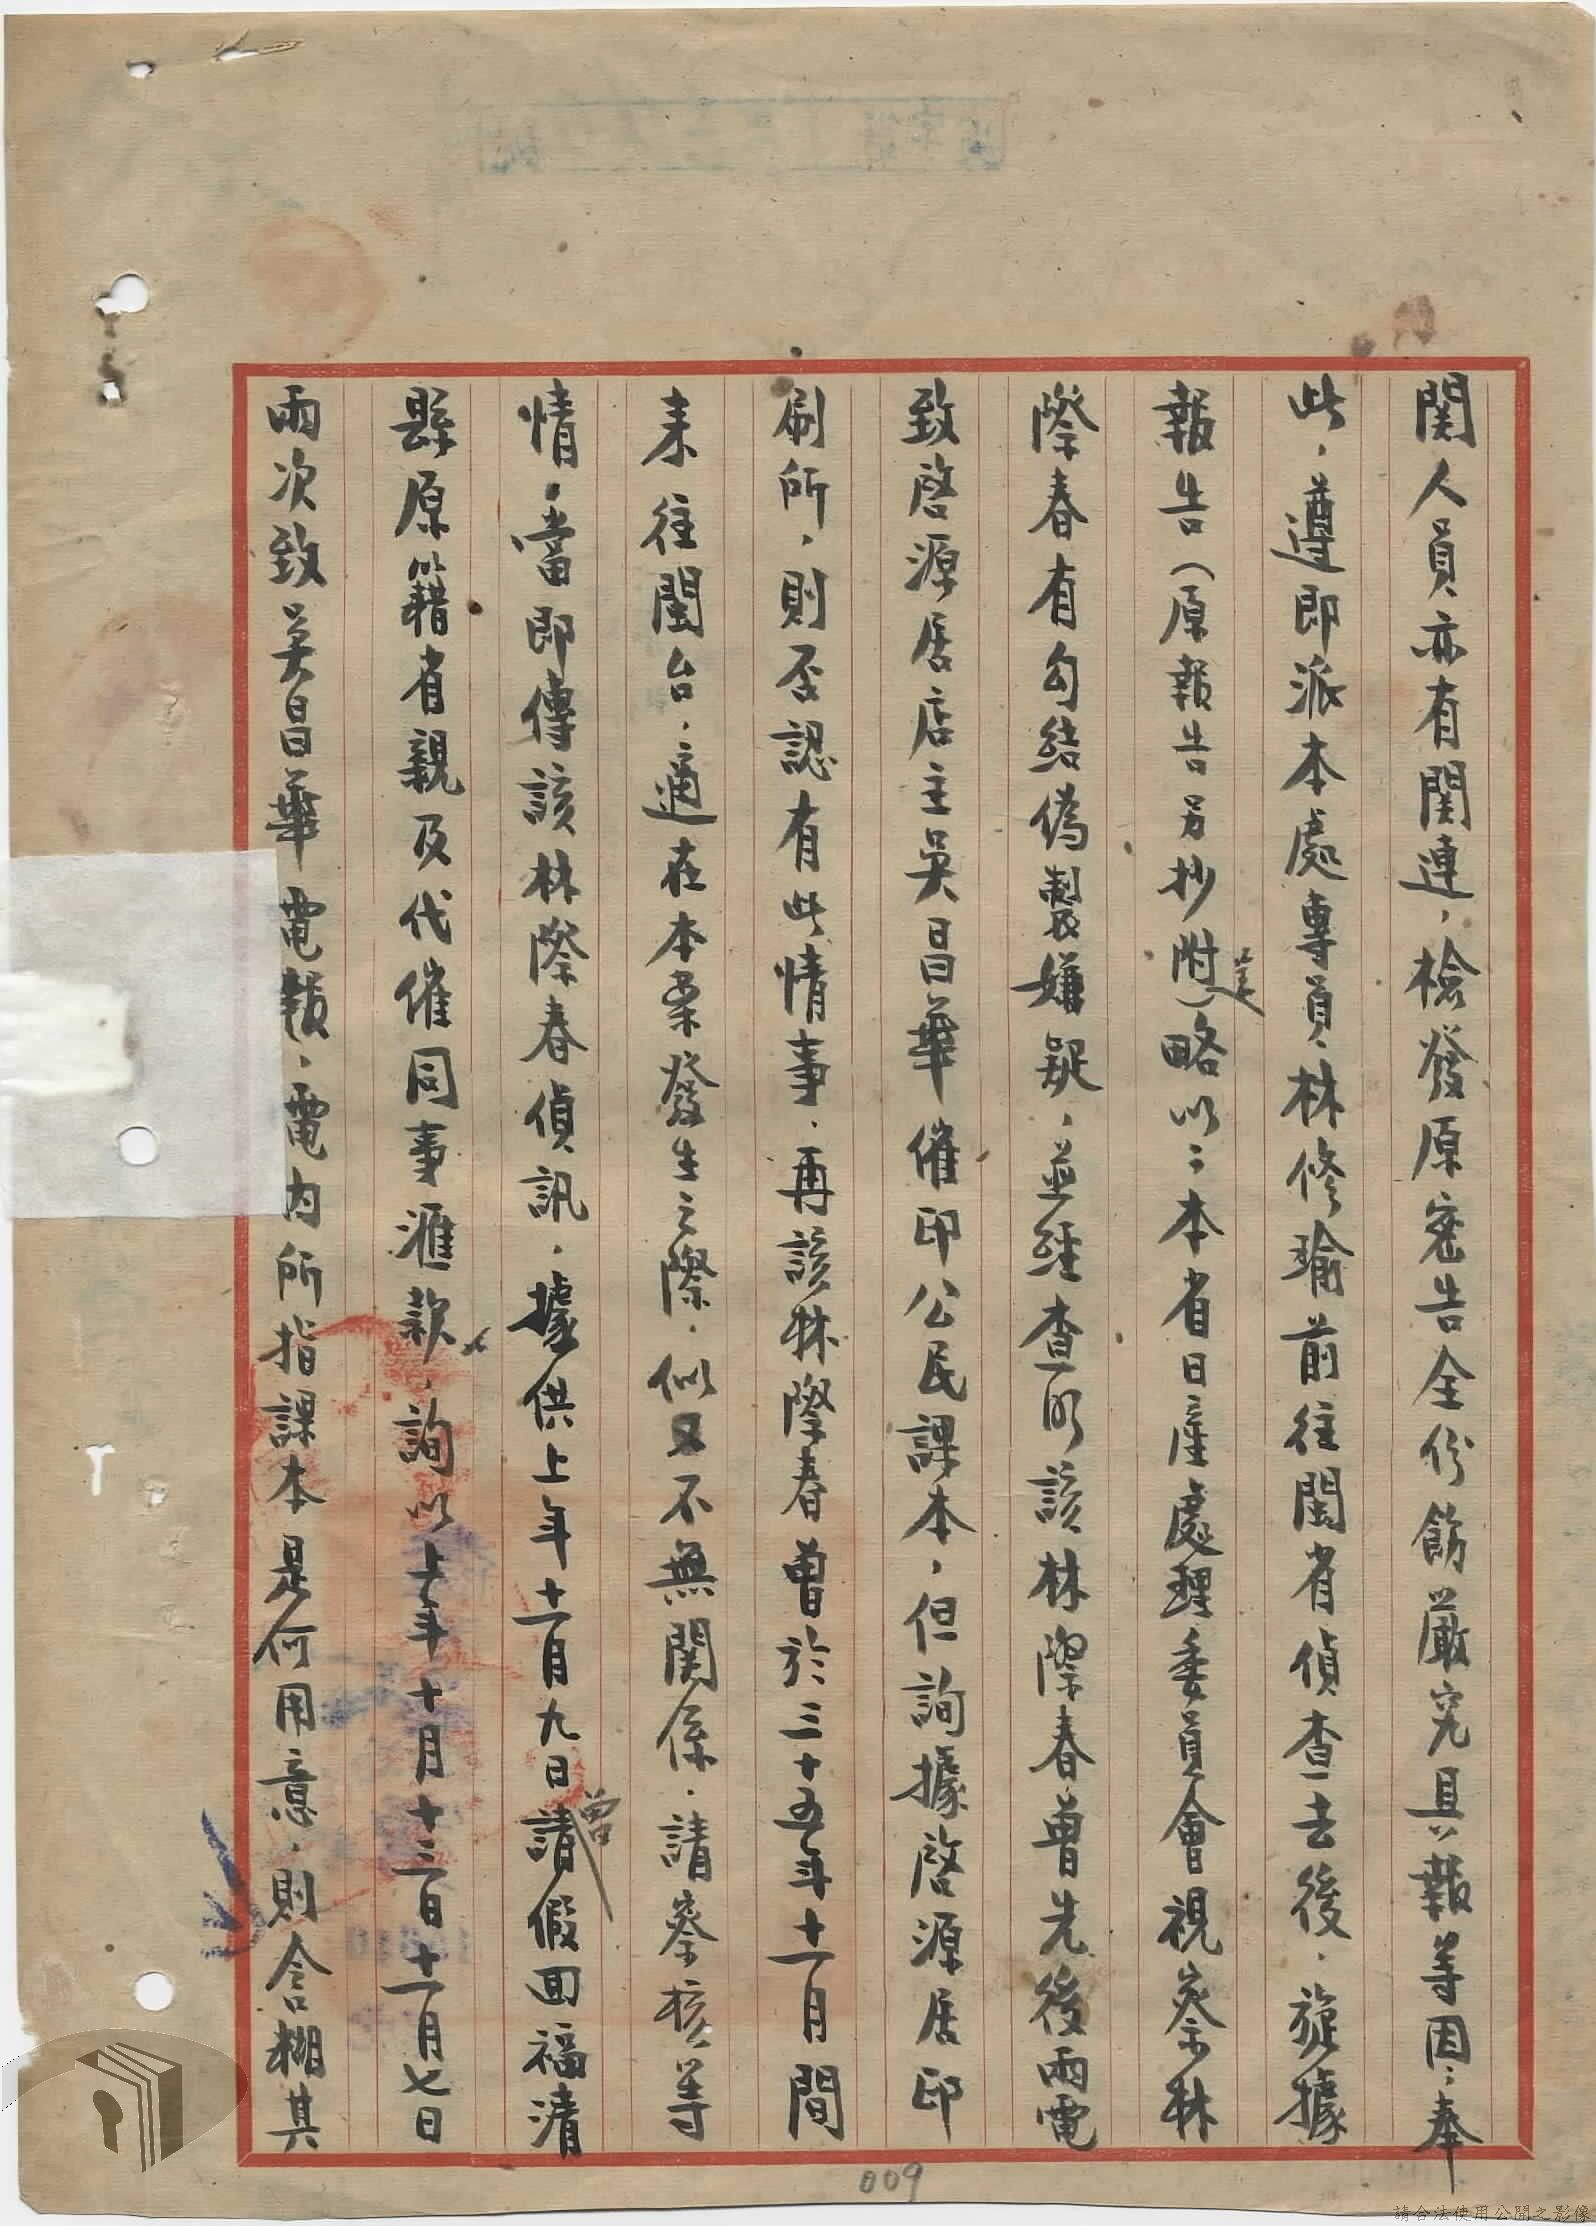 関人員亦有関連，檢發原密告全份飭嚴究具報等因；奉
此，遵即派本處專員林修瑜前往閩省偵查去後，旋據
報告（原報告另抄附呈）略以：本省日產處理委員會視察林
際春有勾結偽製嫌疑，並經查明該林際春曾先後兩電
致啓源居店主吳昌華催印公民課本，但詢據啓源居印
刷所，則否認有此情事，再該林際春曾於三十五年十一月間
來往閩台，適在本案發生之際，似又不無関係，請察核等
情，當即傳該林際春偵訊，據供上年十一月九日曾請假回福清
縣原籍省親及代催同事滙款，詢以上年十月十三日十一月七日
兩次致吳昌華電報，電內所指課本是何用意，則含糊其
009
請合法使用公開之影像